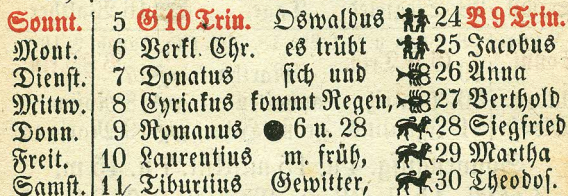 Sonnt. 5 G 10 Trin. Oswaldus 24 B 9 Trin.
Mont. 6 Verkl. Chr. es trübt 25 Jacobus
Dienst. 7 Donatus sich und 26 Anna
Mittw. 8 Cyriakus kommt Regen, 27 Berthold
Donn. 9 Romanus 6 u. 28 28 Siegfried
Freit. 10 Laurentius m. früh, 29 Martha
Samst. 11 Tiburtius Gewitter, 30 Theodos.